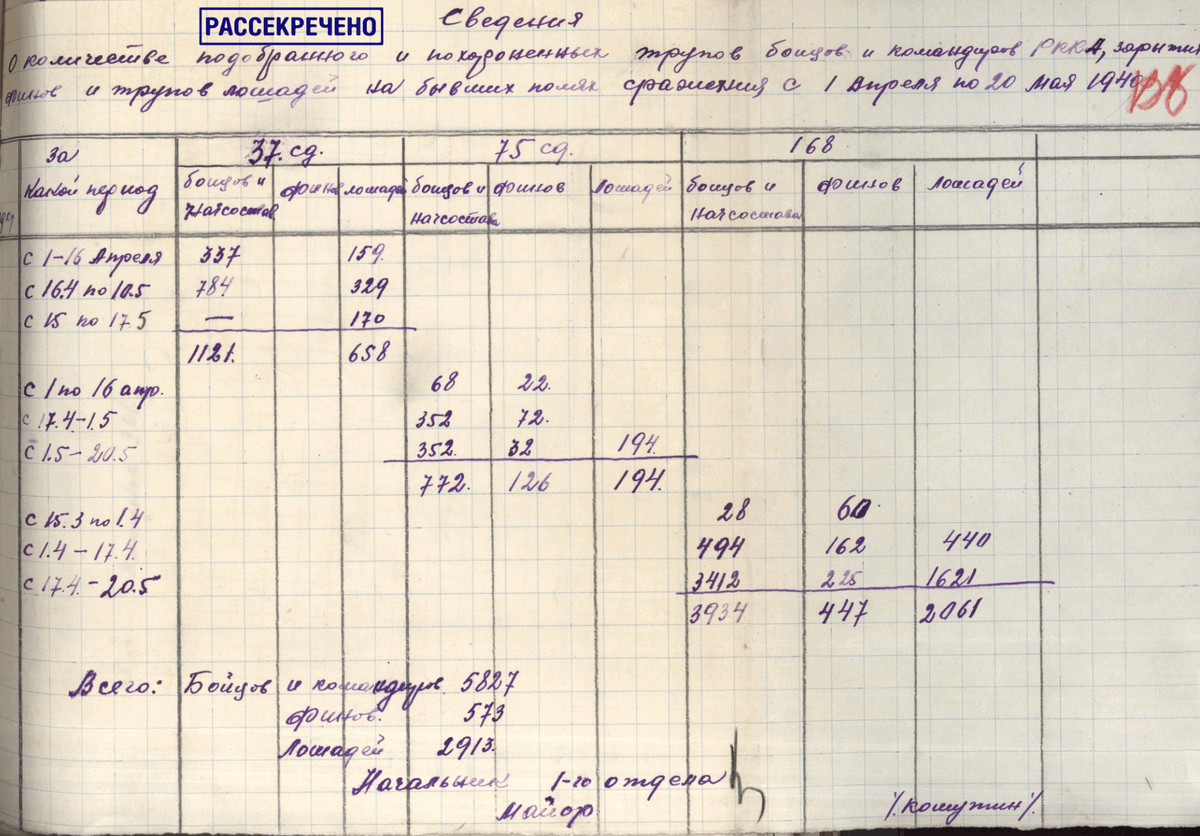 РАССЕКРЕЧЕНО
Сведения
О количестве подобранного и похороненных трупов бойцов и командиров РККА, зарытых
финнов и трупов лошадей на бывших полях сражения с 1 Апреля по 20 мая 1940
За 37 сд. 75 сд. 168
какой период бойцов и финнов лошадей бойцов и финнов лошадей бойцов и финнов лошадей
начсостав начсостава начсостава
с 1-16 Апреля 337 159.
с 16.4 по 10.5 784 329
с 15 по 17.5 — 170
1121. 658
с 1 по 16 апр. 68 22.
с 17.4-1.5 352 72.
с 1.5-20.5 352. 32 194.
772. 126 194.
с 15.3 по 1.4 28 60.
с 1.4-17.4. 494 162 440
с 17.4-20.5 3412 225 1621
3934 447 2061
Всего: Бойцов и командиров 5827
финнов. 573
Лошадей 2913.
Начальник 1-го отдела
Майор /Комутин/.